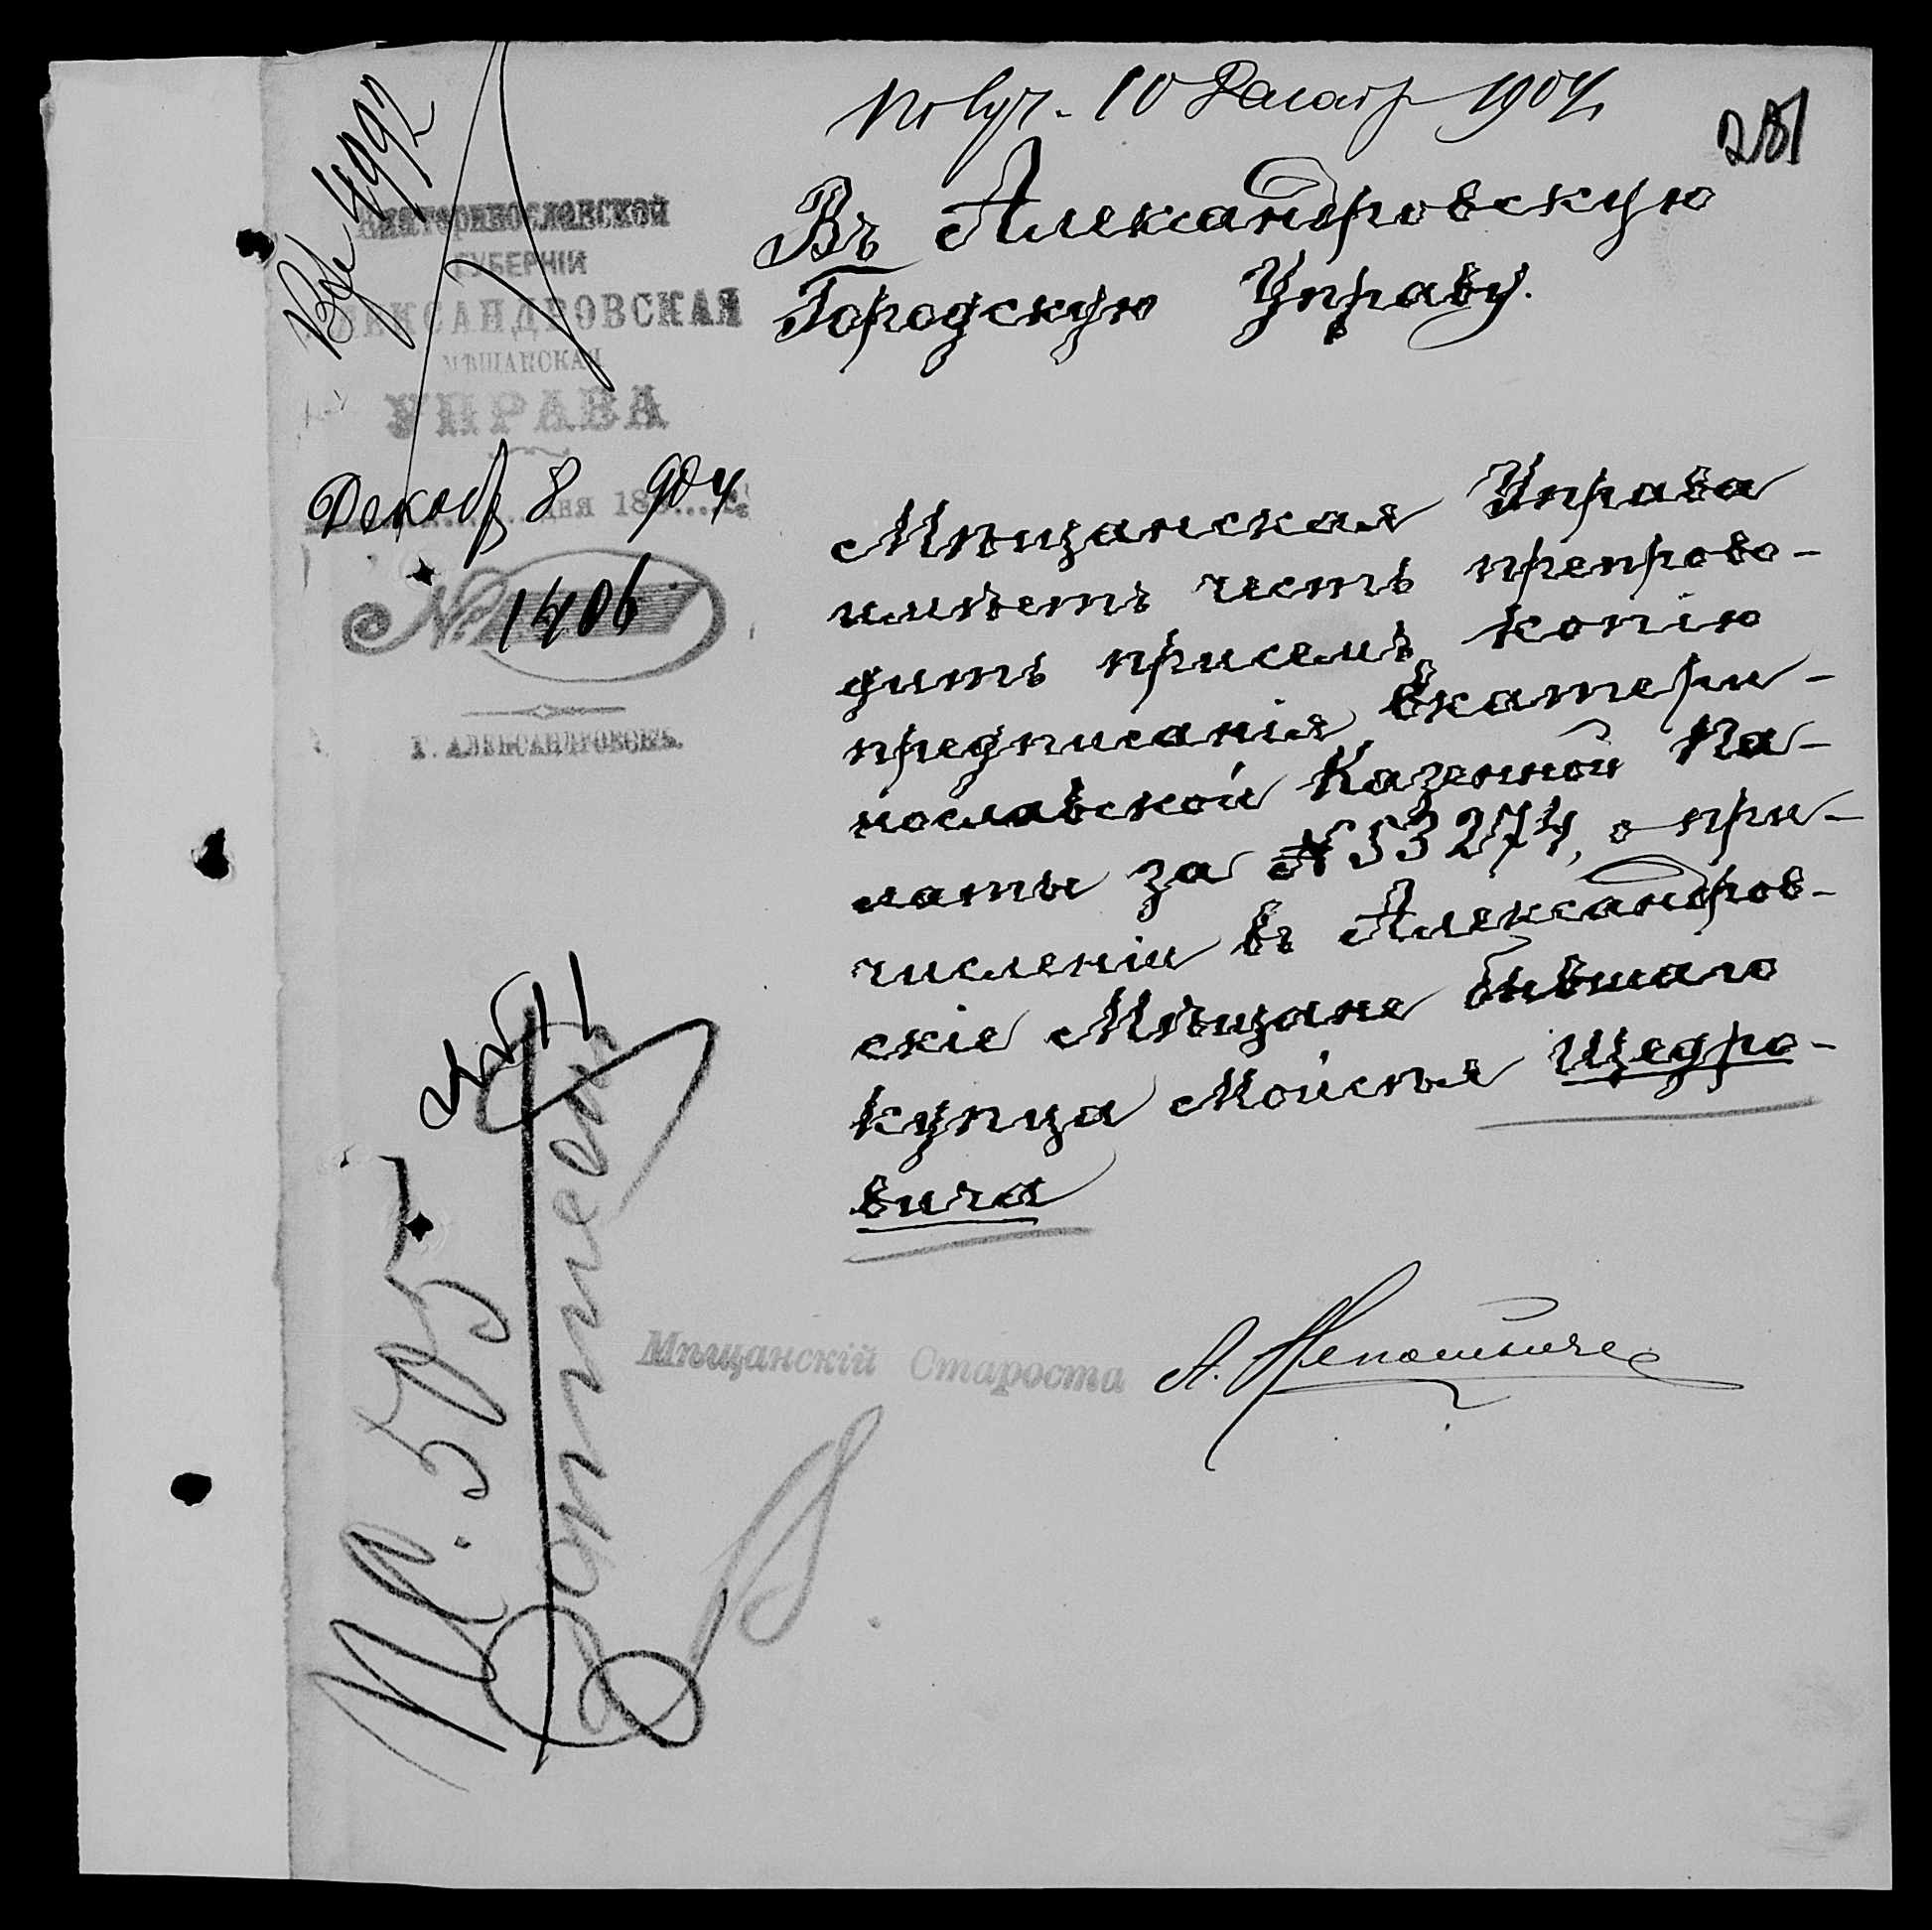 Получ. 10 Декабр 1904
281
Вх 4992
Екатеринославской
ГУБЕРНІИ
АЛЕКСАНДРОВСКАЯ
МѢЩАНСКАЯ
УПРАВА
Декабр 8 дня 904
№ 1406
Г. АЛЕКСАНДРОВСКЪ.
Въ Александровскую
Городскую Управу.
Мѣщанская Управа
имѣетъ честь препрово-
дить присемъ копію
предписанія Екатери-
нославской Казенной Па-
латы за № 53274, о при-
численіи въ Александров-
скіе Мѣщане бывшаго
купца Мойсѣя Щедро-
вича
Мѣщанскій Староста